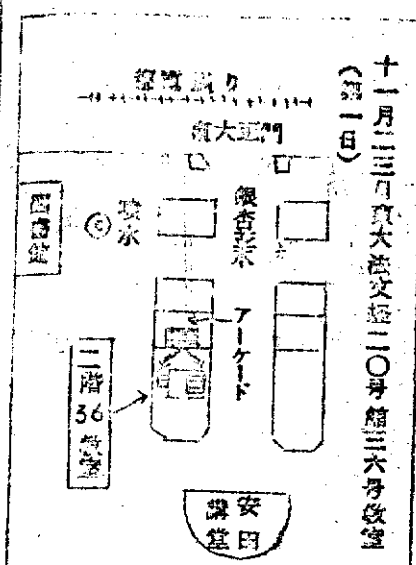 十一月二三日東大法文経二〇号館三六号教室
(第一日)
東大正門
銀杏並木
噴水
図書館
アーケード
二階36教室
安田
講堂